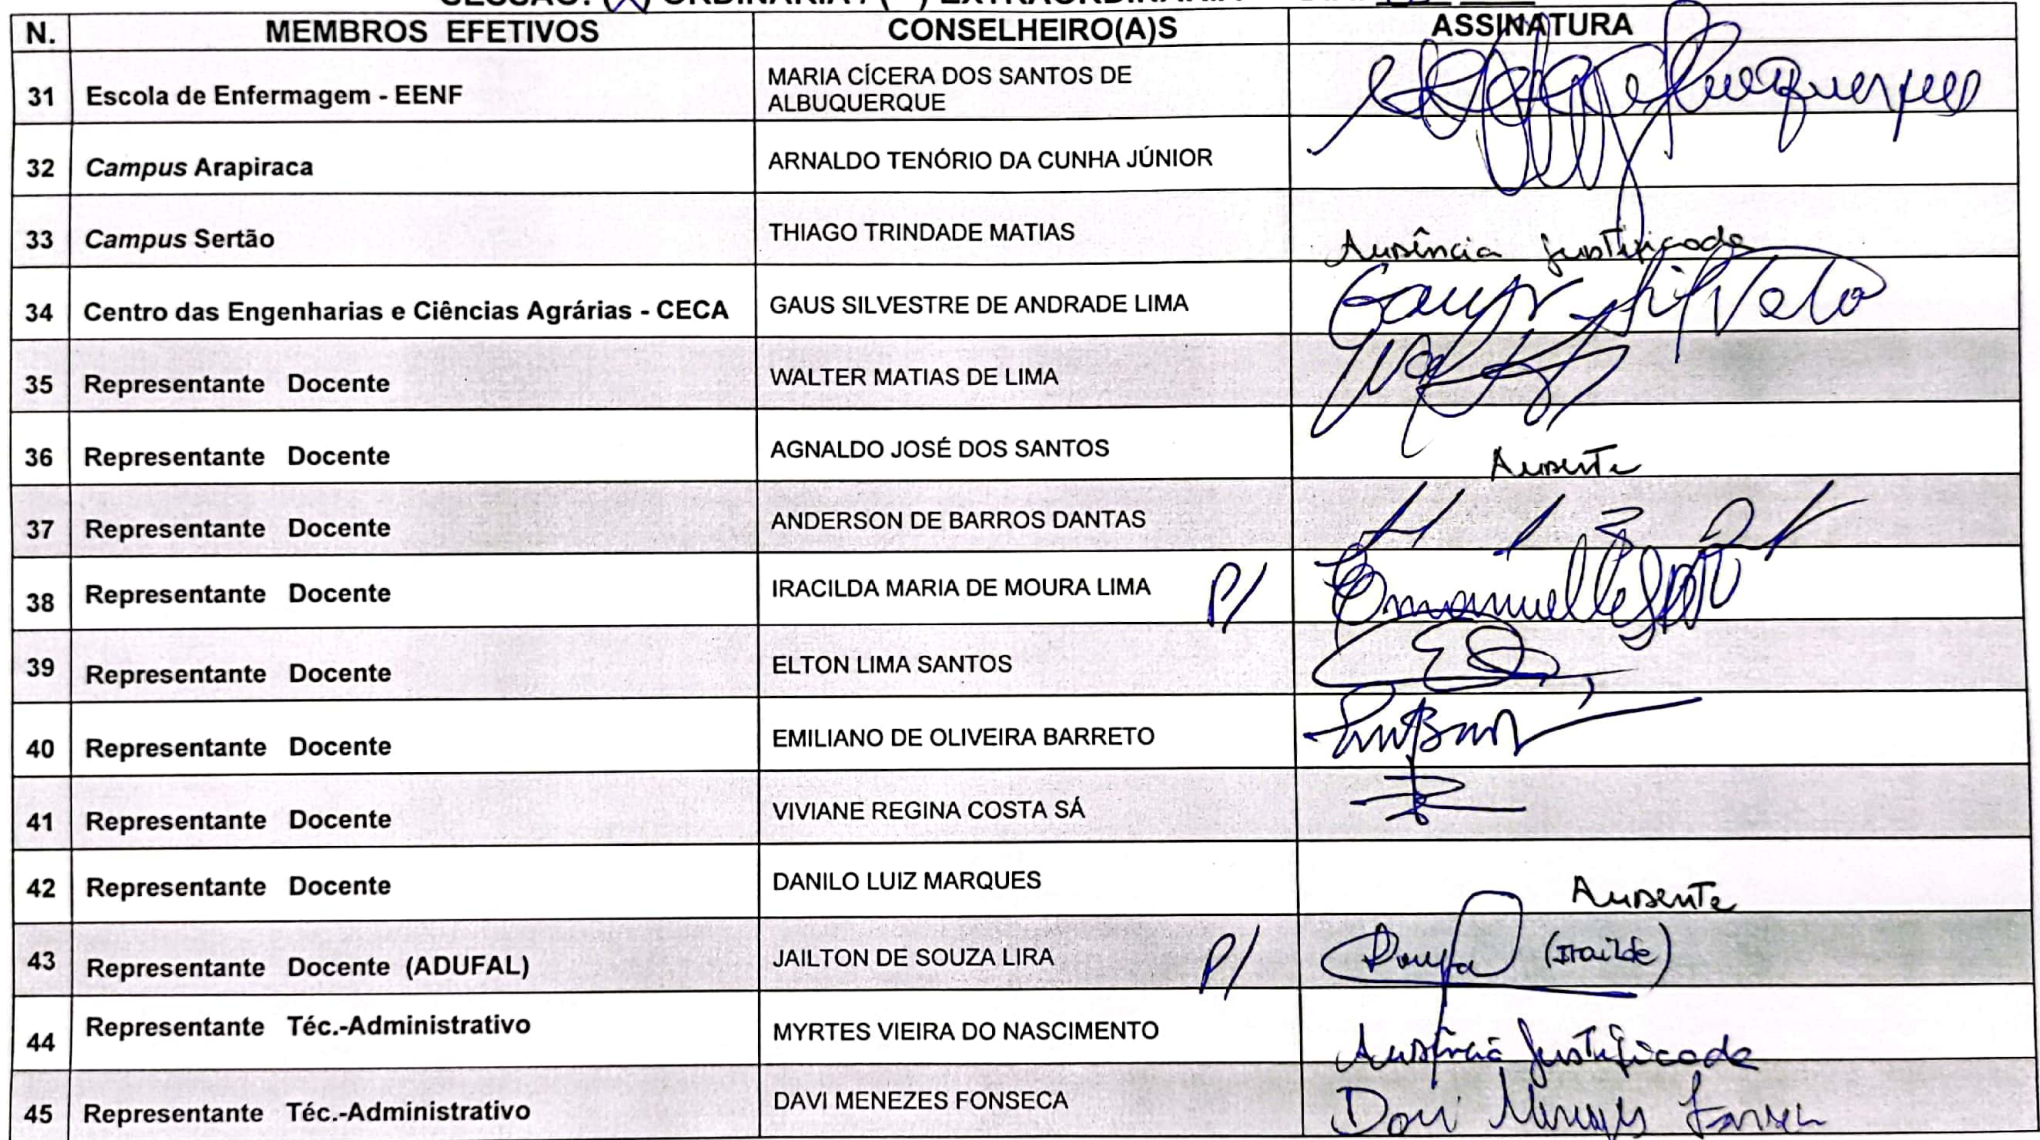 SESSÃO: (X) ORDINÁRIA / ( ) EXTRAORDINÁRIA
N. MEMBROS EFETIVOS CONSELHEIRO(A)S ASSINATURA
31 Escola de Enfermagem - EENF MARIA CÍCERA DOS SANTOS DE
ALBUQUERQUE Albuquerque
32 Campus Arapiraca ARNALDO TENÓRIO DA CUNHA JÚNIOR
33 Campus Sertão THIAGO TRINDADE MATIAS Ausência justificada
34 Centro das Engenharias e Ciências Agrárias - CECA GAUS SILVESTRE DE ANDRADE LIMA
35 Representante Docente WALTER MATIAS DE LIMA
36 Representante Docente AGNALDO JOSÉ DOS SANTOS Ausente
37 Representante Docente ANDERSON DE BARROS DANTAS
38 Representante Docente IRACILDA MARIA DE MOURA LIMA P/ Emanuelle
39 Representante Docente ELTON LIMA SANTOS
40 Representante Docente EMILIANO DE OLIVEIRA BARRETO
41 Representante Docente VIVIANE REGINA COSTA SÁ
42 Representante Docente DANILO LUIZ MARQUES Ausente
43 Representante Docente (ADUFAL) JAILTON DE SOUZA LIRA P/ (Irailde)
44 Representante Téc.-Administrativo MYRTES VIEIRA DO NASCIMENTO Ausência justificada
45 Representante Téc.-Administrativo DAVI MENEZES FONSECA Davi Menezes Fonseca